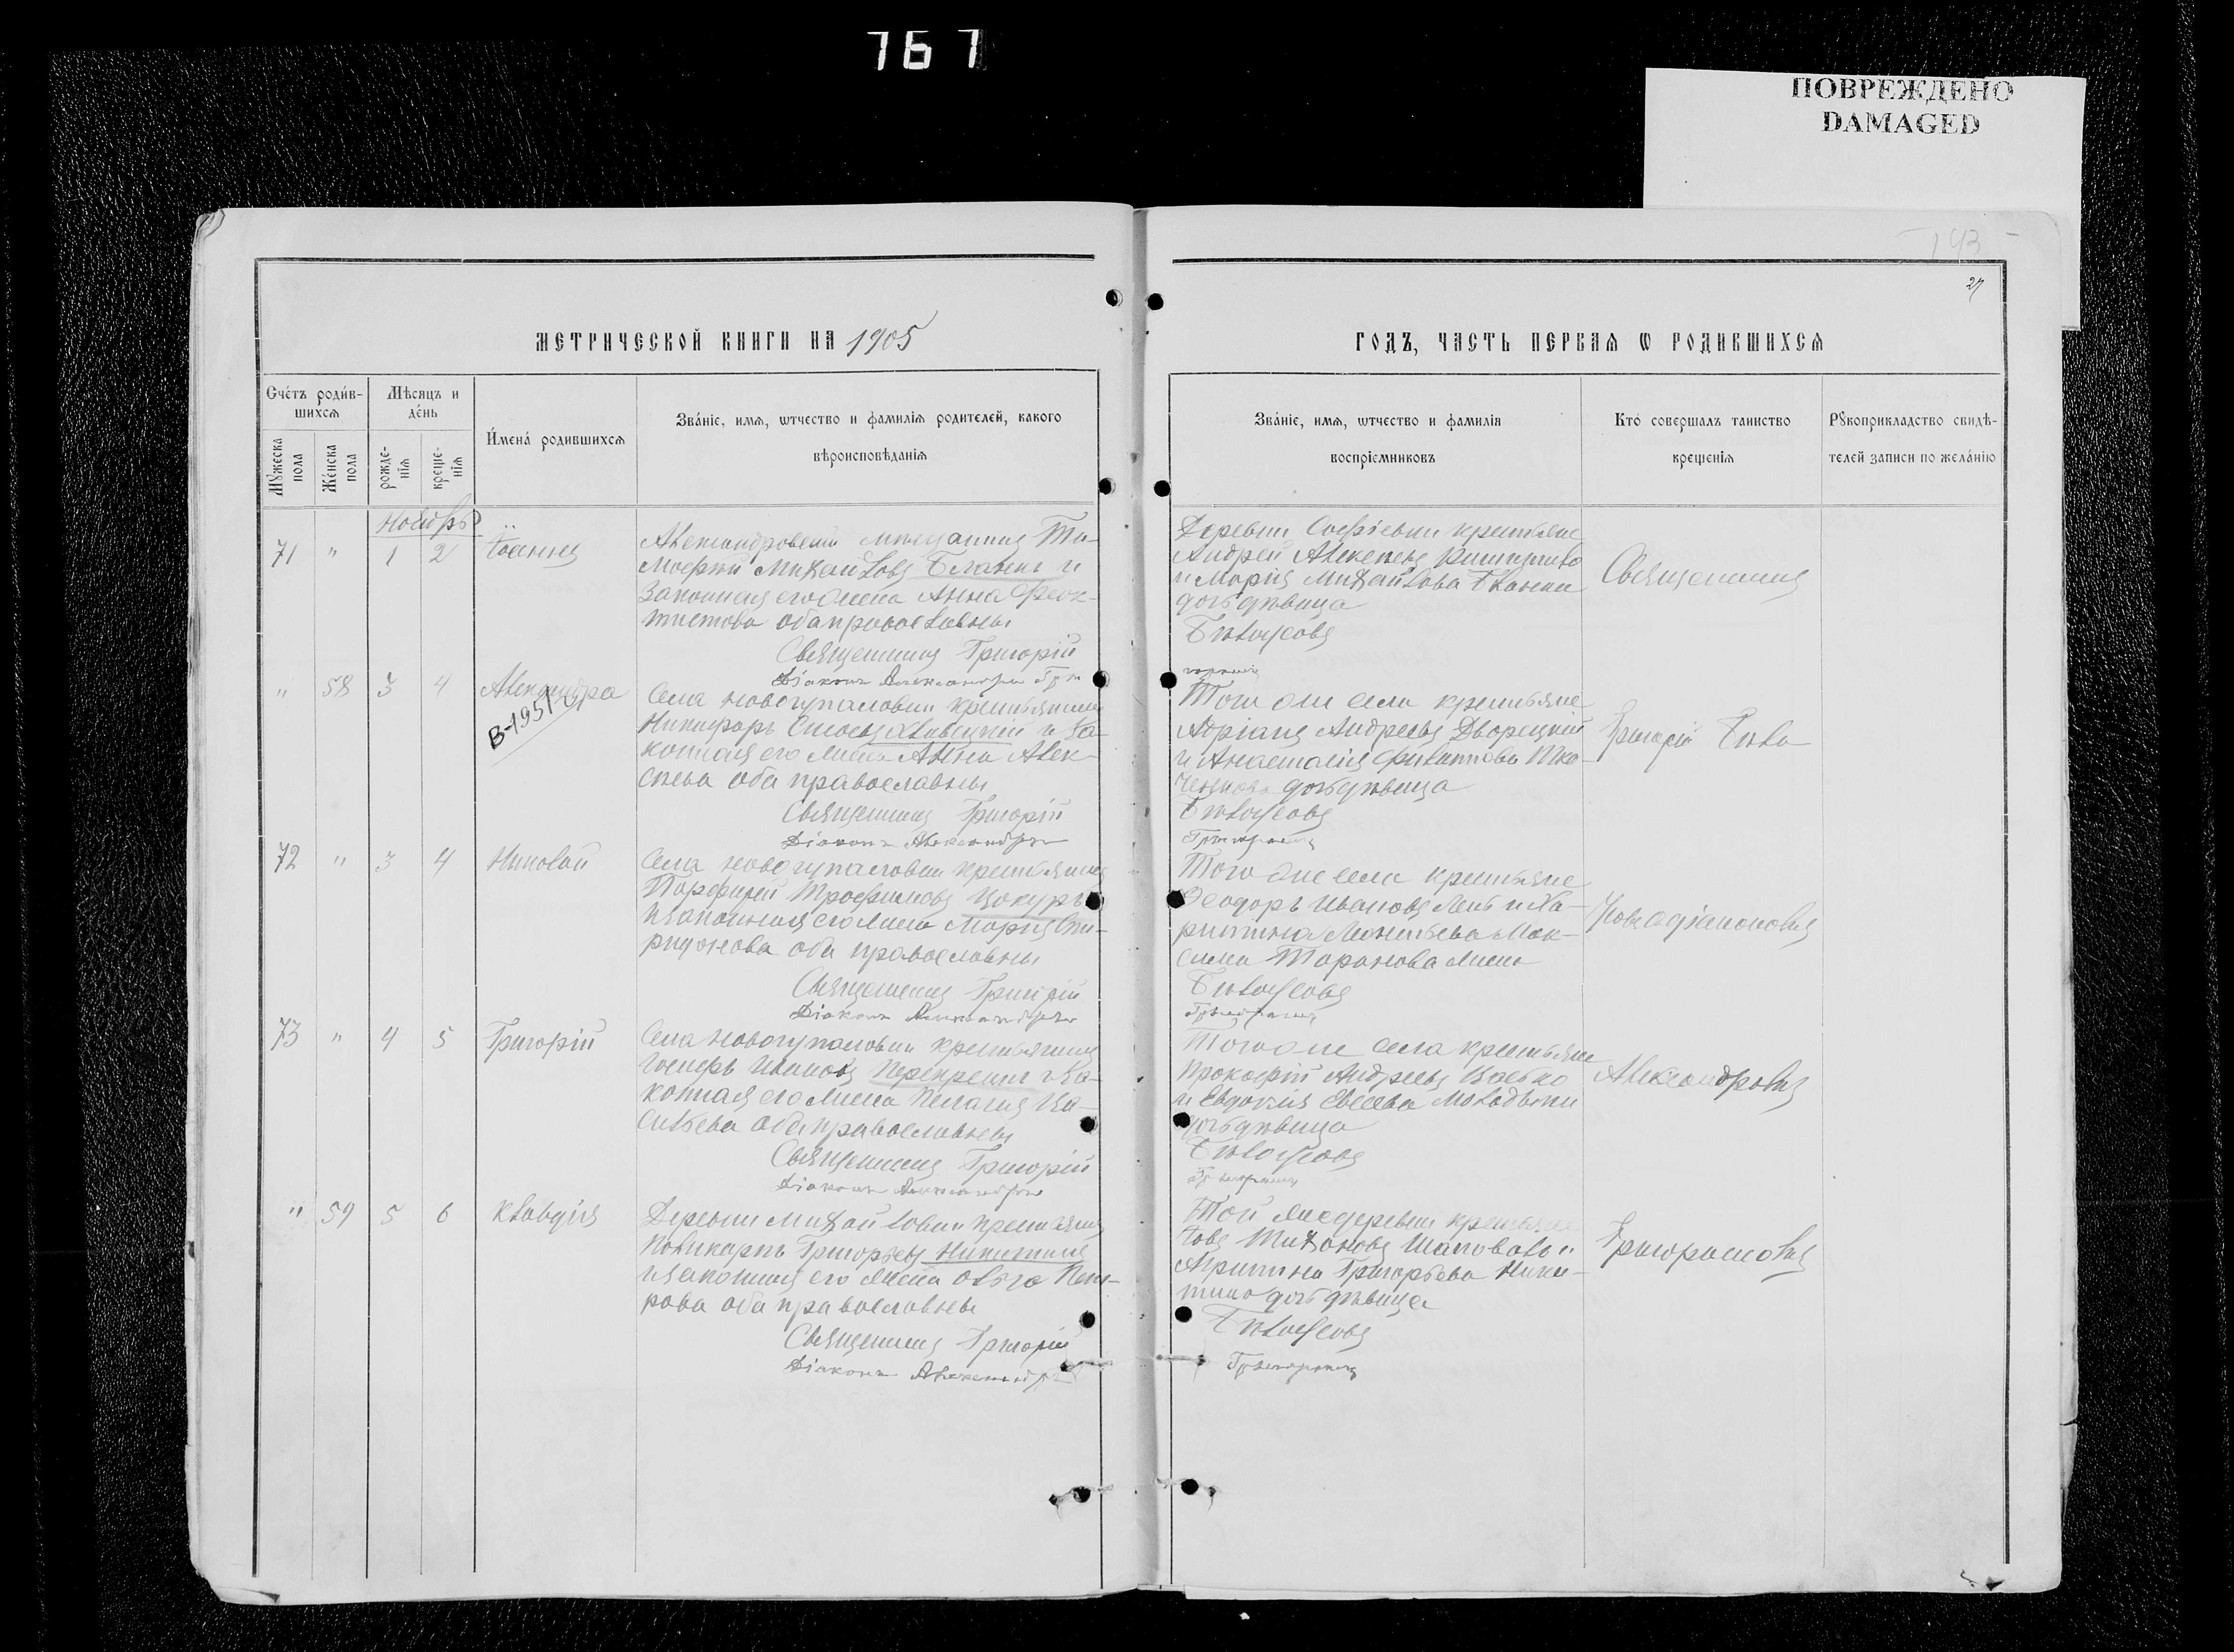 767
ПОВРЕЖДЕНО
DAMAGED
143
27
МЕТРИЧЕСКОЙ КНИГИ НА 1905
ГОДЪ, ЧАСТЬ ПЕРВАЯ Ѡ РОДИВШИХСЯ
Счéтъ родив-
шихсѧ
Мѣсяцъ и
день
Имена родившихсѧ
Званіе, имѧ, ѡтчество и фамиліѧ родителей, какого
вѣроисповѣданіѧ
Мꙋжеска
пола
Женска
пола
рожде-
нія
креще-
нія
Званіе, имѧ, ѡтчество и фамиліѧ
воспріемниковъ
Кто совершалъ таинство
крещеніѧ
Рꙋкоприкладство свидѣ-
телей записи по желанію
Ноябрь
71 " 1 2 Іоаннъ
Александровскій мѣщанинъ Ти-
мофей Михайловъ Бланкъ и
законная его жена Анна Феок-
тистова оба православны
Священникъ Григорій
Діаконъ Александръ
Деревни Софіевки крестьяне
Андрей Алексеевъ
и Марія Михайлова Бланки
дочь дѣвица
Бѣлоусовъ
Священникъ
" 58 3 4 Александра
В-1951
Села Новогупаловки крестьянинъ
Никифоръ и за-
конная его жена Анна Алек-
сѣева оба православны
Священникъ Григорій
Діаконъ Александръ
Того же села крестьяне
Адріанъ Андреевъ Дворецкій
и Анастасія Филиппова Тка-
ченкова дочь дѣвица
Бѣлоусовъ
Григорашъ
Григорій Бѣло
72 " 3 4 Николай
Села Новогупаловки крестьянинъ
Порфирій Трофимовъ Цокуръ
и законная его жена Марія Спи-
ридонова оба православны
Священникъ Григорій
Діаконъ Александръ
Того же села крестьяне
Ѳеодоръ Ивановъ Лень и Ха-
ритина Леонтьева Мак-
сима Таранова жена
Бѣлоусовъ
Григорашъ
Усовъ съ діакономъ
73 " 4 5 Григорій
Села Новогупаловки крестьянинъ
Іосифъ Ивановъ и за-
конная его жена Пелагія Ва-
сильева оба православны
Священникъ Григорій
Діаконъ Александръ
Того же села крестьяне
Прокофій Андреевъ
и Евдокія Евсеева
дочь дѣвица
Бѣлоусовъ
Григорашъ
Александромъ
" 59 5 6 Клавдія
Деревни Михайловки крестьянинъ
Поликарпъ Григорьевъ Никитинъ
и законная его жена Ольга Пет-
рова оба православны
Священникъ Григорій
Діаконъ Александръ
Той же деревни крестьяне
Іовъ Тихоновъ Шаповалъ и
Агрипина Григорьева Ники-
тина дочь дѣвица
Бѣлоусовъ
Григорашъ
Григорашомъ